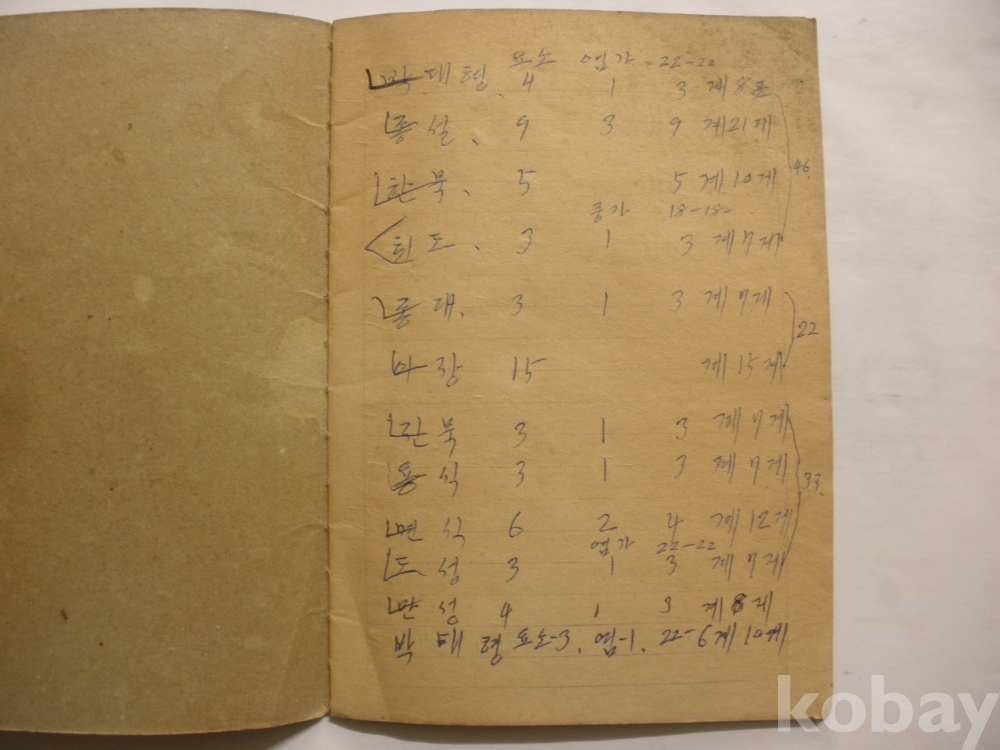 요소 염가 22-22
박대형. 4 1 3 계8포
종설. 9 3 9 계21대
한묵. 5 5 계10계
중가 18-18-
희도. 3 1 3 계7계
46.
종대. 3 1 3 계7계
22
마장 15 계15계
관묵 3 1 3 계7계
용식 3 1 3 계7계
33.
면식 6 2 4 계12계
염가 22-22
도성 3 1 3 계7계
만성 4 1 3 계8계
박태형 요소-3. 염-1. 22-6계10계
kobay